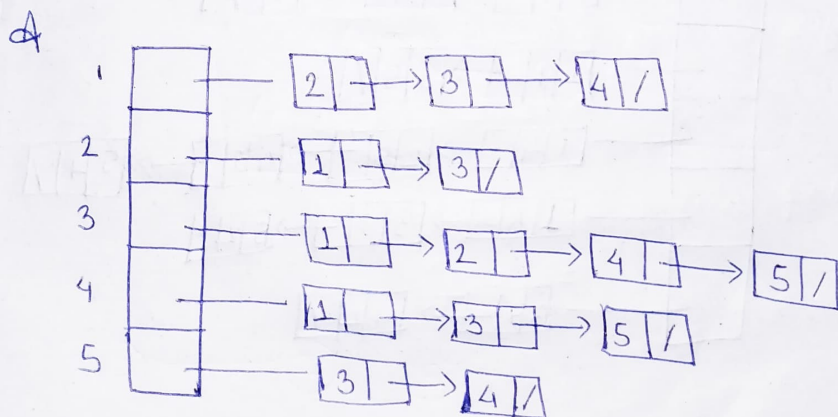 A
1 2 3 4 /
2 1 3 /
3 1 2 4 5 /
4 1 3 5 /
5 3 4 /